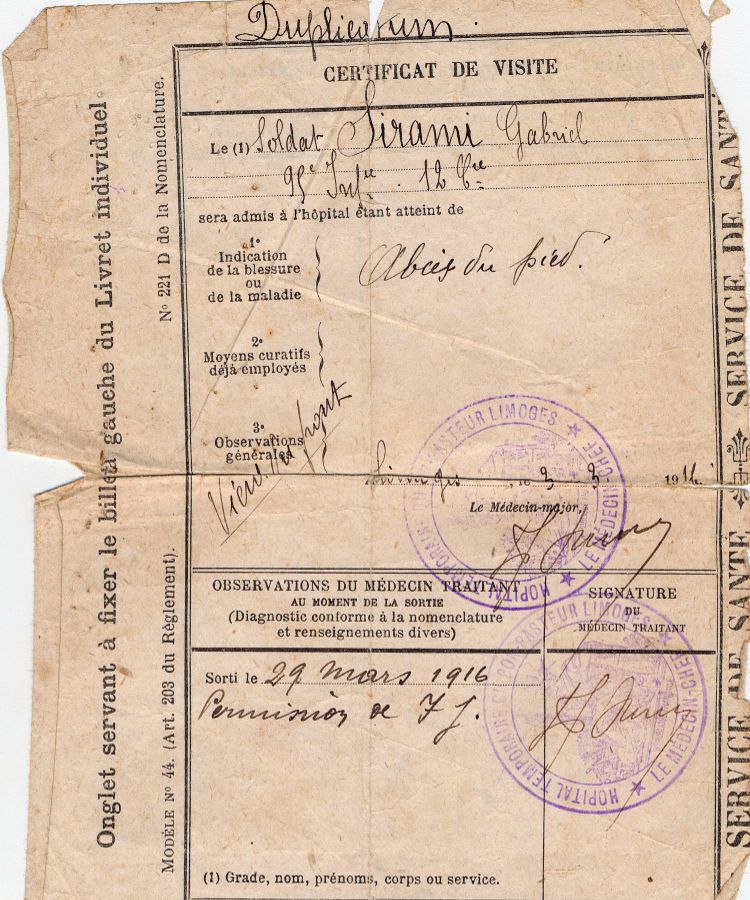 Duplicatum
CERTIFICAT DE VISITE
Le (1) Soldat Sirami Gabriel
95e Infie. 12 Cie
sera admis à l'hôpital étant atteint de
1º
Indication
de la blessure
ou
de la maladie
Abcès du pied.
2º
Moyens curatifs
déjà employés
3º
Observations
générales
Vient du front
Limoges, le 3 3 1916
Le Médecin-major,
HOPITAL TEMPORAIRE DU PASTEUR LIMOGES ★ LE MÉDECIN-CHEF ★
OBSERVATIONS DU MÉDECIN TRAITANT
AU MOMENT DE LA SORTIE
(Diagnostic conforme à la nomenclature
et renseignements divers)
SIGNATURE
DU
MÉDECIN TRAITANT
Sorti le 29 mars 1916
Permission de 7 j.
HOPITAL TEMPORAIRE DU PASTEUR LIMOGES ★ LE MÉDECIN-CHEF ★
(1) Grade, nom, prénoms, corps ou service.
Onglet servant à fixer le billet à gauche du Livret individuel
Nº 221 D de la Nomenclature.
MODÈLE Nº 44. (Art. 203 du Règlement).
SERVICE DE SANTÉ
SERVICE DE SANTÉ